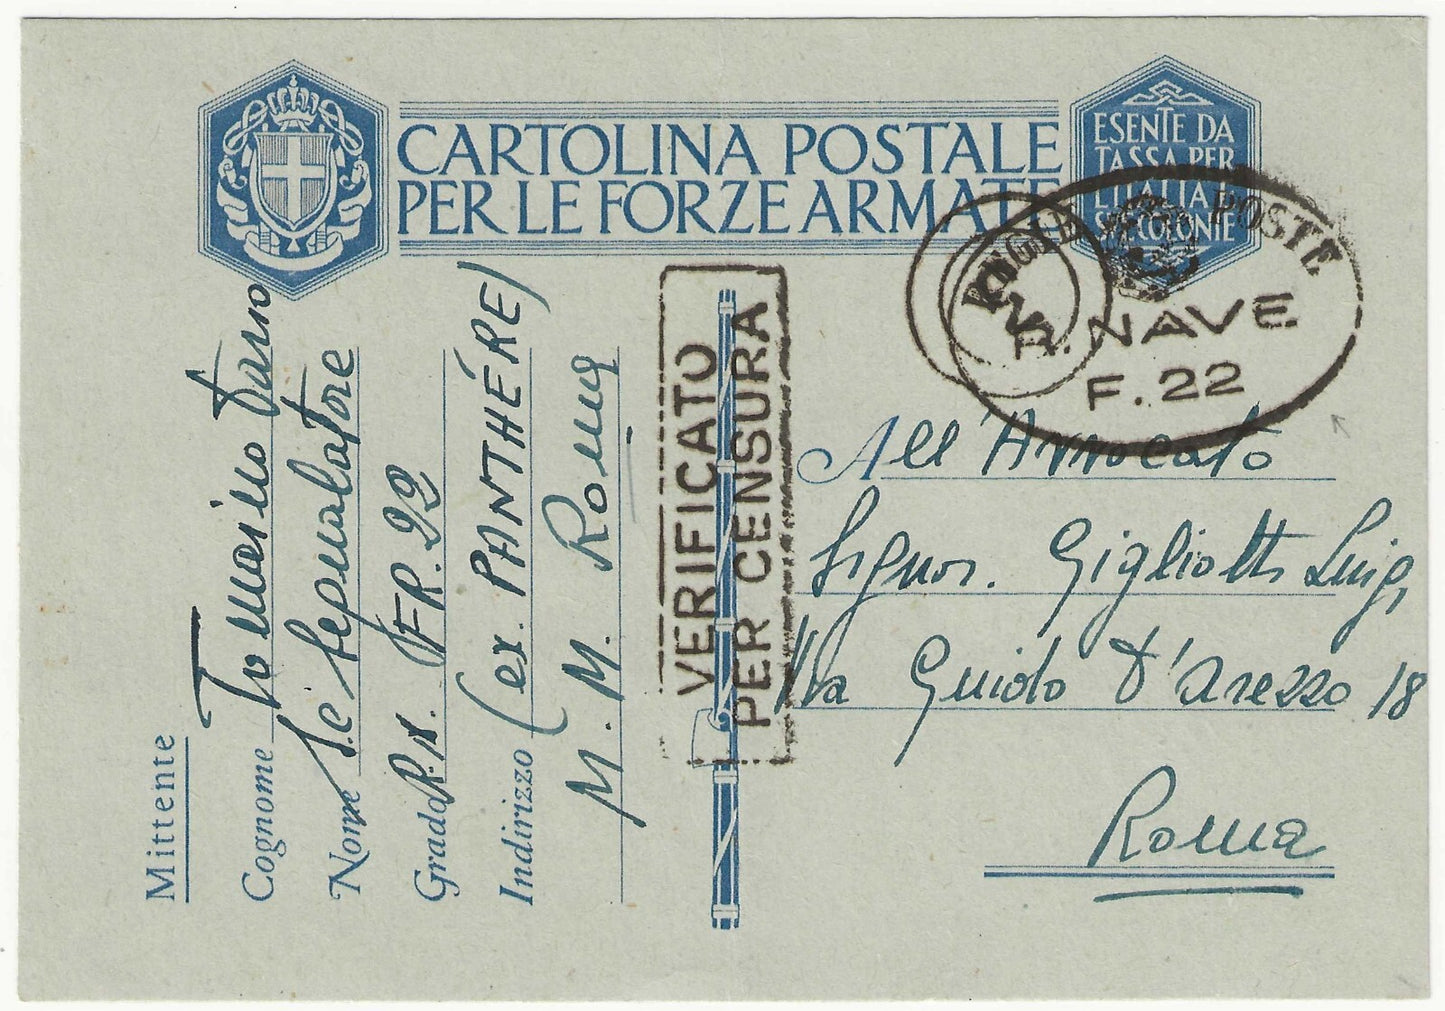 CARTOLINA POSTALE
PER LE FORZE ARMATE
ESENTE DA
TASSA PER
L'ITALIA E
SUE COLONIE
REGIE POSTE
R. NAVE
F. 22
VERIFICATO
PER CENSURA
Mittente
Cognome Tomaino
Nome S.c Segnalatore
Grado R.N. FR. 22
Indirizzo (ex. PANTHÉRE)
M. M. Roma
All'Avvocato
Signor. Gigliotti Luigi
Via Guido D'Arezzo 18
Roma